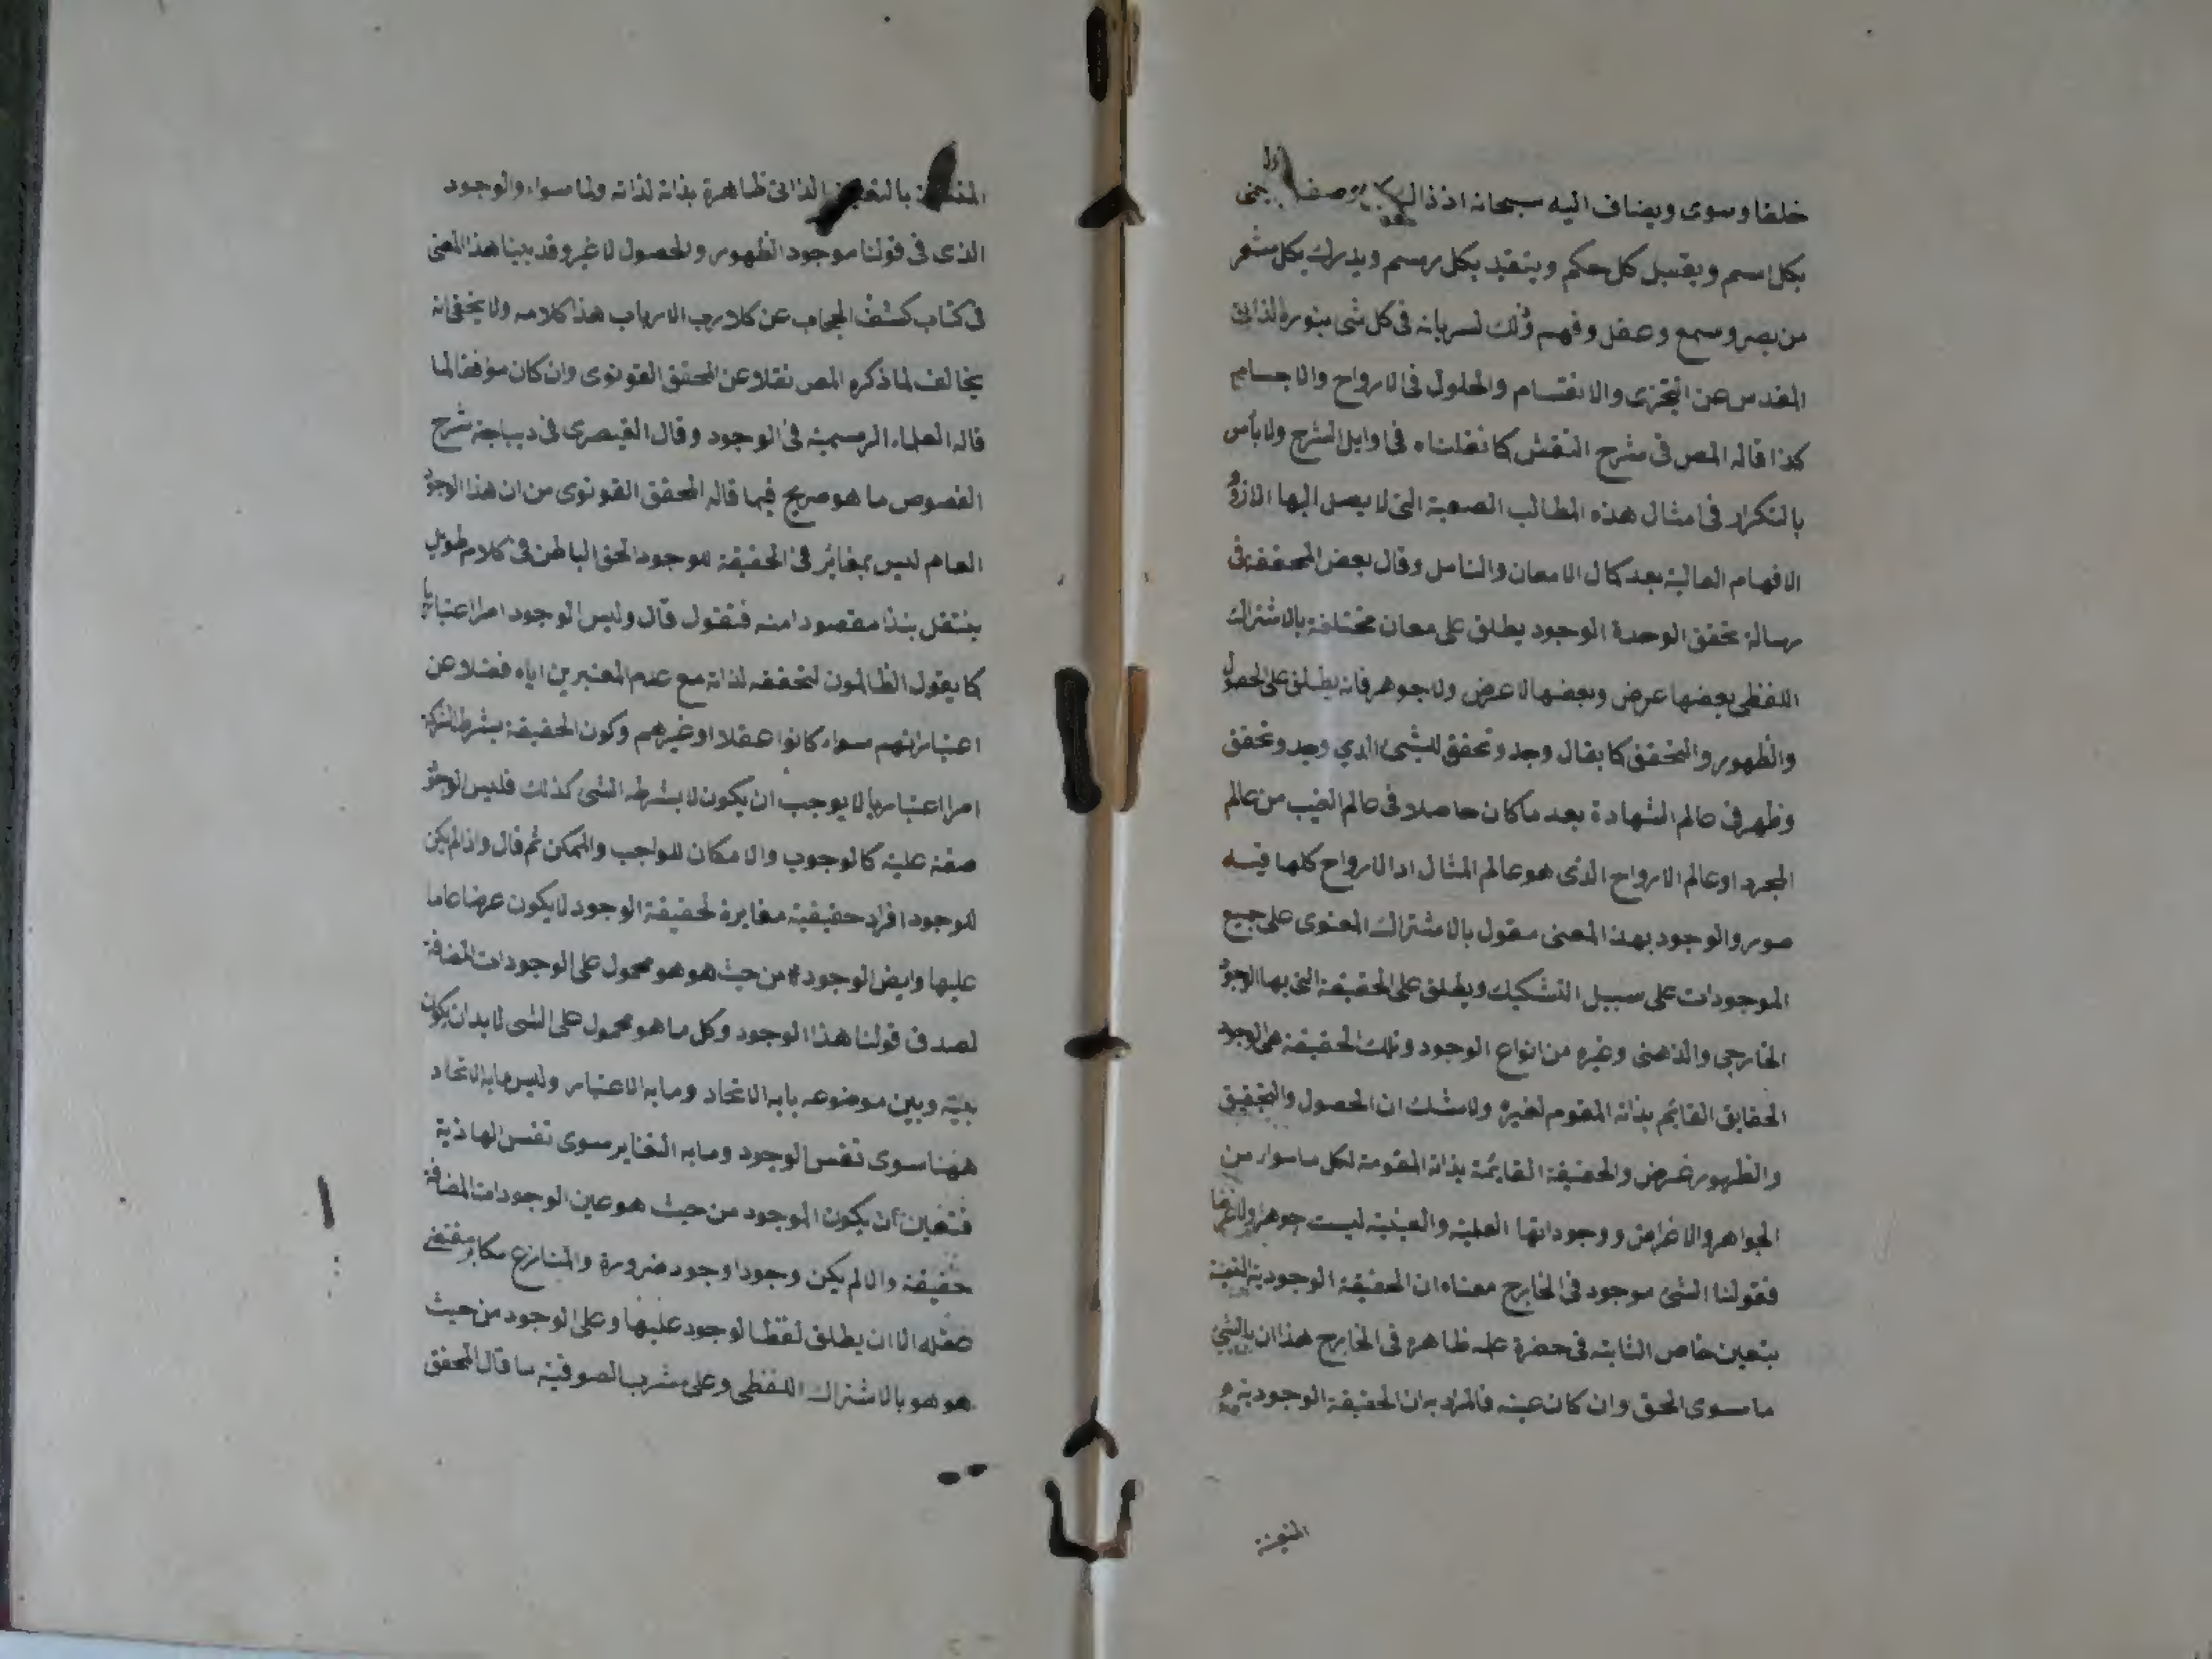 خلقا وسوى ويضاف اليه سبحانه اذ ذاك بكل وصف
بكل اسم ويقبل كل حكم ويتقيد بكل رسم ويدرك بكل مشعر
من بصر وسمع وعقل وفهم وذلك لسريانه فى كل شى بنوره الذاتى
المقدس عن التجزى والانقسام والحلول فى الارواح والاجسام
كذا قاله المص فى شرح النقش كما نقلناه فى اوايل الشرح ولا بأس
بالتكرار فى امثال هذه المطالب الصعبة التى لا يصل اليها الا ذوو
الافهام العالية بعد كمال الامعان والتامل وقال بعض المحققين فى
رسالة تحقق الوحدة الوجود يطلق على معان مختلفة بالاشتراك
اللفظى بعضها عرض وبعضها لا عرض ولا جوهر فانه يطلق على الحصول
والظهور والتحقق كما يقال وجد وتحقق للشىء الذي وجد وتحقق
وظهر فى عالم الشهادة بعد ما كان حاصلا فى عالم الغيب من عالم
المجرد او عالم الارواح الذى هو عالم المثال اذ الارواح كلها فيه
صور والوجود بهذا المعنى مقول بالاشتراك المعنوى على جميع
الموجودات على سبيل التشكيك ويطلق على الحقيقة التى بها الوجود
الخارجى والذهنى وغيره من انواع الوجود وتلك الحقيقة هى الوجود
الحقايق القائم بذاته المقوم لغيره ولا شك ان الحصول والتحقيق
والظهور عرض والحقيقة القائمة بذاته المقومة لكل ما سواه من
الجواهر والاعراض ووجوداتها العلية والعينية ليست جوهرا ولا عرضا
فقولنا الشئ موجود فى الخارج معناه ان الحقيقة الوجودية المتعينة
بتعين خاص الثابتة فى حضرة علمه ظاهره فى الخارج هذا ان بالشئ
ما سوى الحق وان كان عينه فالمراد به ان الحقيقة الوجودية
المتعينة
المتعينة بالتعين الذاتى ظاهرة بذاته لذاته ولما سواه والوجود
الذى فى قولنا موجود الظهور والحصول لا غير وقد بينا هذا المعنى
فى كتاب كشف الحجاب عن كلام رب الارباب هذا كلامه ولا يخفى انه
يخالف لما ذكره المص نقلا عن المحقق القونوى وان كان موفقا لما
قاله العلماء الرسمية فى الوجود وقال القيصرى فى ديباجة شرح
الفصوص ما هو صريح فيما قاله المحقق القونوى من ان هذا الوجود
العام ليس بمغاير فى الحقيقة للوجود الحق الباطن فى كلام طويل
ينتقل بنذا مقصودا منه فنقول قال وليس الوجود امرا اعتباريا
كما يقول الظالمون لتحققه لذاته مع عدم المعتبرين اياه فضلا عن
اعتباراتهم سواء كانوا عقلا او غيرهم وكون الحقيقة بشرط الشركة
امرا اعتباريا لا يوجب ان يكون لا بشرط الشى كذلك فليس الوجود
صفة علية كالوجوب والامكان للواجب والممكن ثم قال واذا لم يكن
للوجود افراد حقيقية مغايرة لحقيقة الوجود لا يكون عرضا عاما
عليها وايض الوجود من حيث هو هو محمول على الوجودات المضافة
لصدق قولنا هذا الوجود وكل ما هو محمول على الشى لا بد ان يكون
بينه وبين موضوعه بابه الاتحاد وما به الاعتبار وليس ما به الاتحاد
ههنا سوى نفس الوجود وما به التغاير سوى نفس الهاذية
فتعين أن يكون الموجود من حيث هو عين الوجودات المضافة
حقيقة والا لم يكن وجودا وجود ضرورة والمنازع مكابر مقتضى
عقله الا ان يطلق لفظ الوجود عليها وعلى الوجود من حيث
هو هو بالاشتراك اللفظى وعلى مشرب الصوفية ما قال المحقق